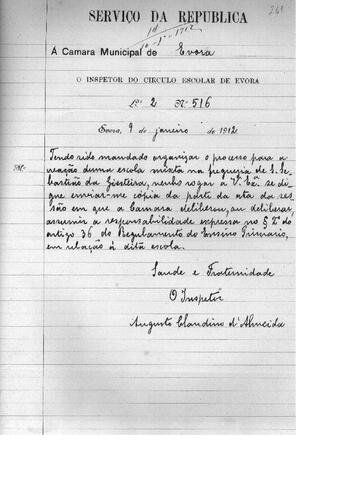 261
SERVIÇO DA REPUBLICA
Á Camara Municipal de Evora
O INSPETOR DO CIRCULO ESCOLAR DE EVORA
L.º 2 N.º 516
Evora, 9 de janeiro de 1912
Tendo sido mandado organizar o processo para a
creação duma escola mixta na freguezia de S. Se-
bastião da Giesteira, venho rogar a V. Ex.ª se di-
gne enviar-me cópia da parte da ata da ses-
são em que a Camara deliberou, ou deliberar,
assumir a responsabilidade expressa no § 2.º do
artigo 36 do Regulamento do Ensino Primario,
em relação á dita escola.
Saude e Fraternidade
O Inspetor
Augusto Claudino d'Almeida